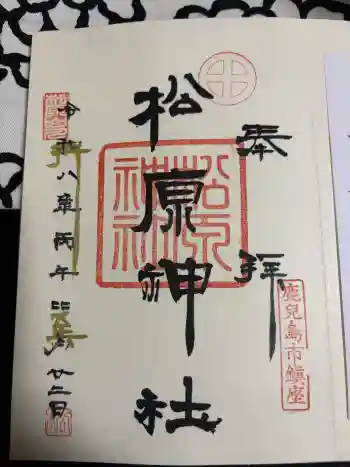 奉拝
鹿兒島市鎮座
松原神社
松原神社
令和八年丙午 廿二日